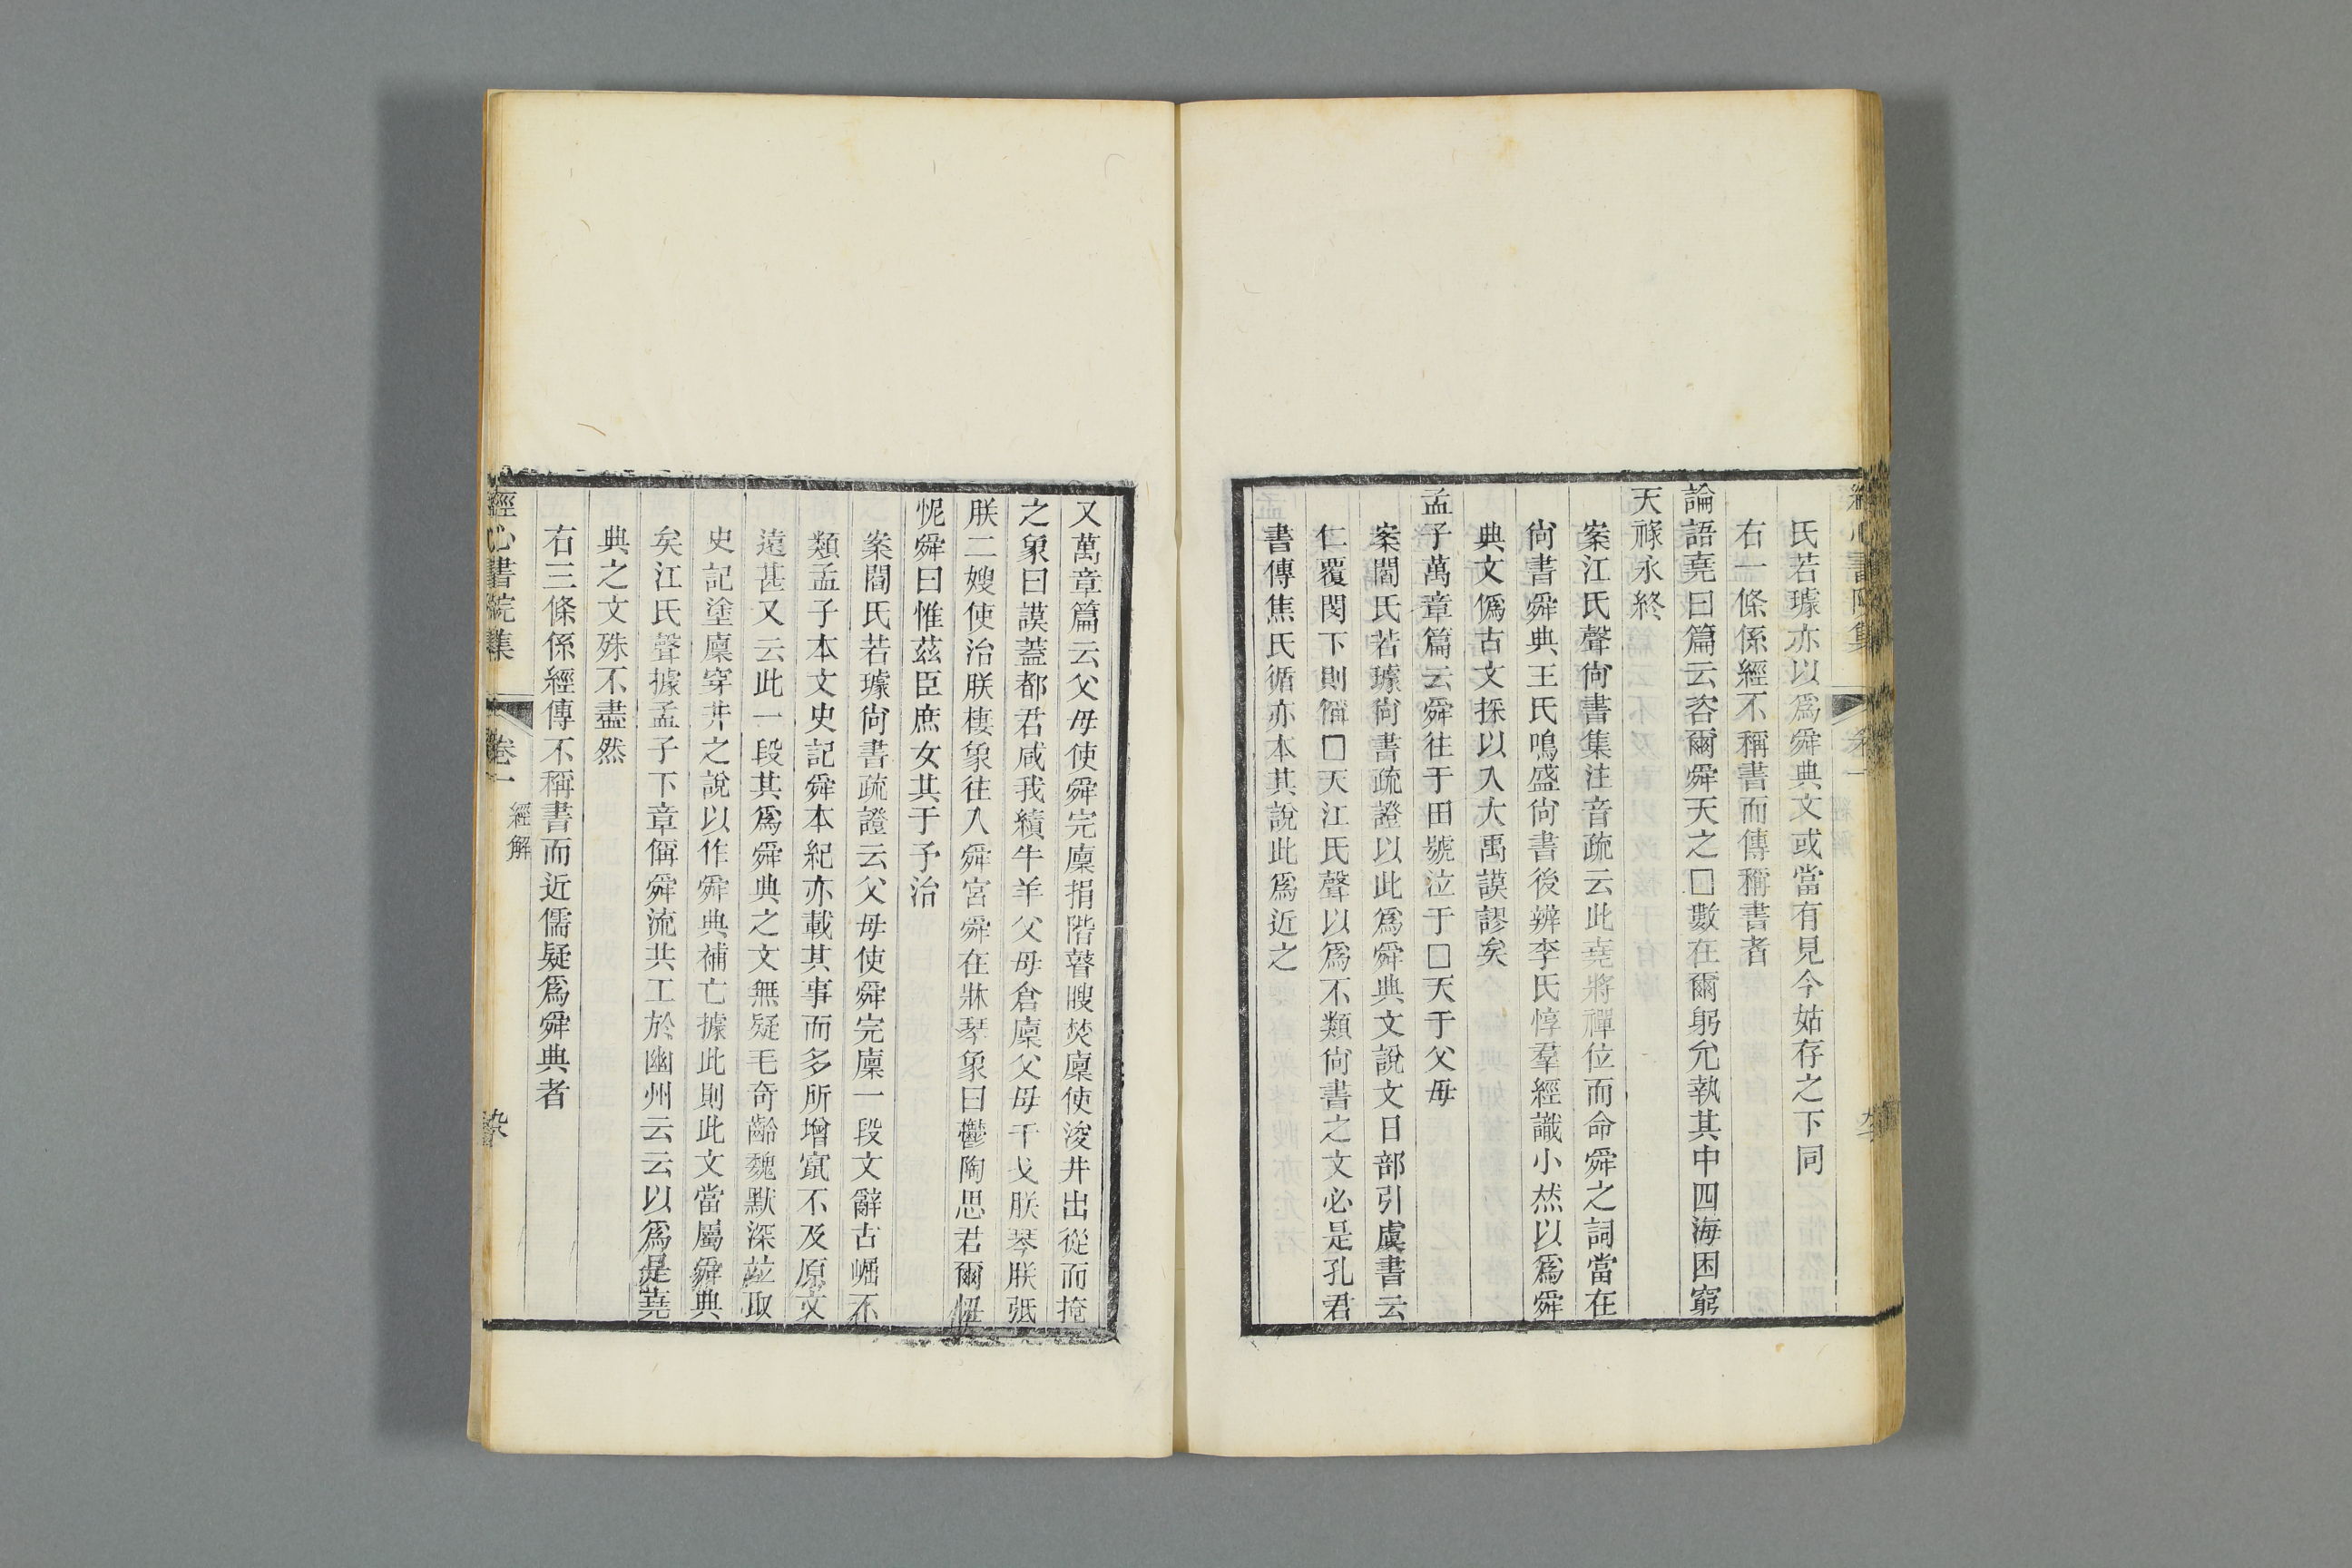 氏若璩亦以爲舜典文或當有見今姑存之下同
右一條係經不稱書而傳稱書者
論語堯曰篇云咨爾舜天之□數在爾躬允執其中四海困窮
天祿永終
案江氏聲尙書集注音疏云此堯將禪位而命舜之詞當在
尙書舜典王氏鳴盛尙書後辨李氏惇羣經識小𠀤以爲舜
典文僞古文採以入大禹謨謬矣
孟子萬章篇云舜往于田號泣于□天于父母
案閻氏若璩尙書疏證以此爲舜典文說文日部引虞書云
仁覆閔下則偁□天江氏聲以爲不類尙書之文必是孔君
書傳焦氏循亦本其說此爲近之
又萬章篇云父母使舜完廩捐階瞽瞍焚廩使浚井出從而掩
之象曰謨蓋都君咸我績牛羊父母倉廩父母干戈朕琴朕弤
朕二嫂使治朕棲象往入舜宮舜在牀琴象曰鬱陶思君爾忸
怩舜曰惟茲臣庶女其于予治
案閻氏若璩尙書疏證云父母使舜完廩一段文辭古崛不
類孟子本文史記舜本紀亦載其事而多所增竄不及原文
遠甚又云此一段其爲舜典之文無疑毛奇齡魏默深竝取
史記塗廩穿井之說以作舜典補亡據此則此文當屬舜典
矣江氏聲據孟子下章偁舜流共工於幽州云云以爲是堯
典之文殊不盡然
右三條係經傳不稱書而近儒疑爲舜典者
經心書院集 卷一 經解